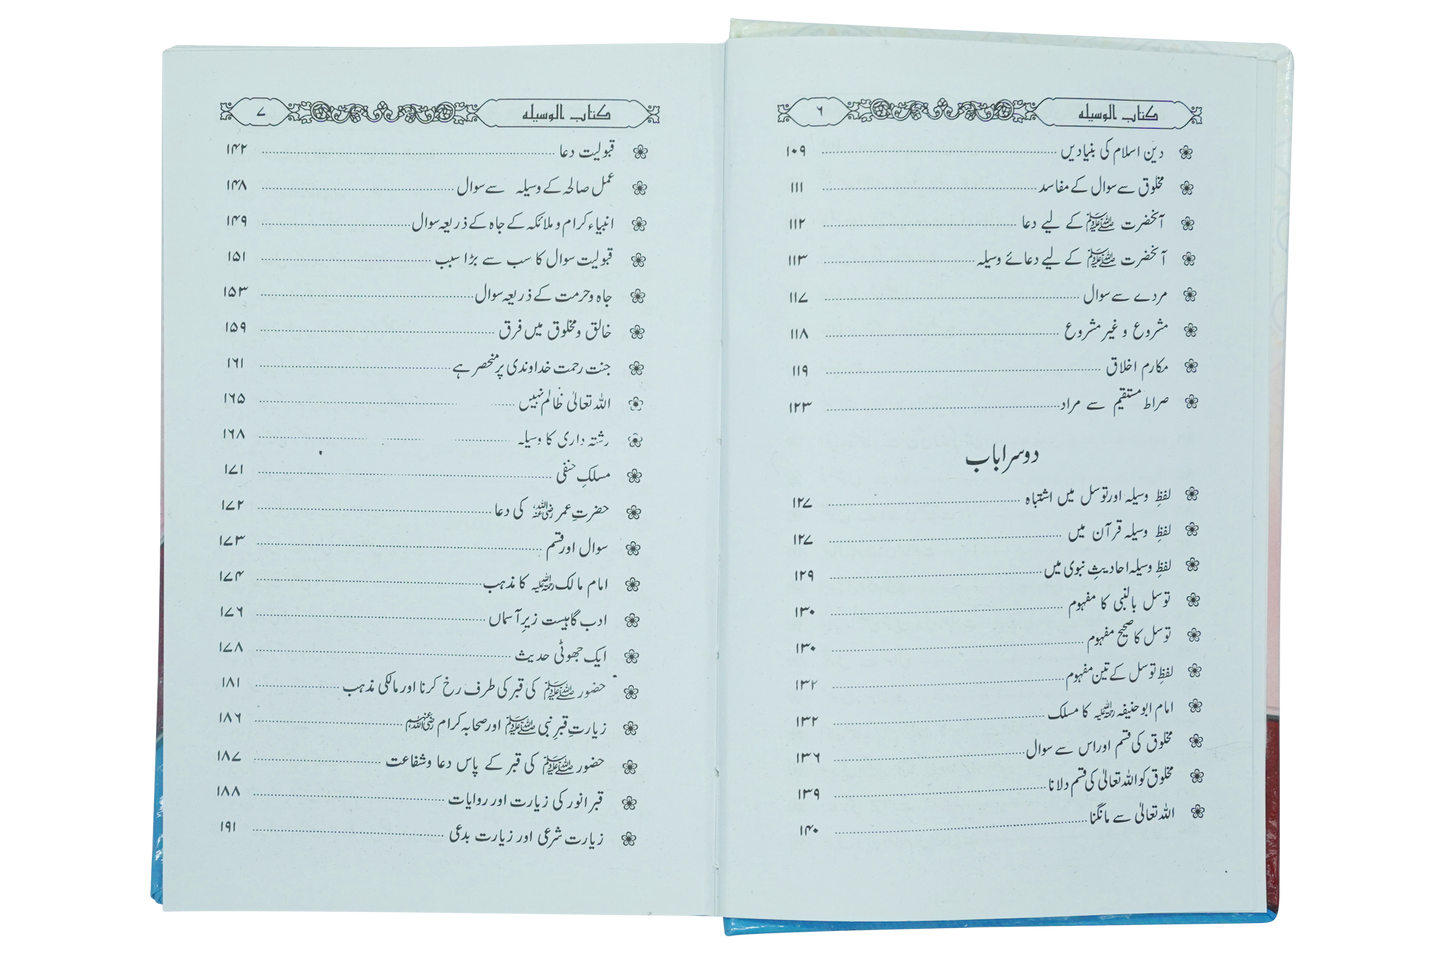 کتاب الوسیله ۶
دین اسلام کی بنیادیں ۱۰۹
مخلوق سے سوال کے مفاسد ۱۱۱
آنحضرت ﷺ کے لیے دعا ۱۱۲
آنحضرت ﷺ کے لیے دعائے وسیلہ ۱۱۳
مردے سے سوال ۱۱۷
مشروع و غیر مشروع ۱۱۸
مکارم اخلاق ۱۱۹
صراط مستقیم سے مراد ۱۲۳
دوسرا باب
لفظِ وسیلہ اور توسل میں اشتباہ ۱۲۷
لفظِ وسیلہ قرآن میں ۱۲۷
لفظِ وسیلہ احادیثِ نبوی میں ۱۲۹
توسل بالنبی کا مفہوم ۱۳۰
توسل کا صحیح مفہوم ۱۳۰
لفظِ توسل کے تین مفہوم ۱۳۲
امام ابوحنیفہ رحمہ اللہ کا مسلک ۱۳۲
مخلوق کی قسم اور اس سے سوال ۱۳۶
مخلوق کو اللہ تعالیٰ کی قسم دلانا ۱۳۹
اللہ تعالیٰ سے مانگنا ۱۴۰
کتاب الوسیله ۷
قبولیت دعا ۱۴۲
عمل صالحہ کے وسیلہ سے سوال ۱۴۸
انبیاء کرام و ملائکہ کے جاہ کے ذریعہ سوال ۱۴۹
قبولیت سوال کا سب سے بڑا سبب ۱۵۱
جاہ و حرمت کے ذریعہ سوال ۱۵۳
خالق و مخلوق میں فرق ۱۵۹
جنت رحمت خداوندی پر منحصر ہے ۱۶۱
اللہ تعالیٰ ظالم نہیں ۱۶۵
رشتہ داری کا وسیلہ ۱۶۸
مسلکِ حنفی ۱۷۱
حضرتِ عمر رضی اللہ عنہ کی دعا ۱۷۲
سوال اور قسم ۱۷۳
امام مالک رحمہ اللہ علیہ کا مذہب ۱۷۴
ادب گاہیست زیرِ آسماں ۱۷۶
ایک جھوٹی حدیث ۱۷۸
حضور ﷺ کی قبر کی طرف رخ کرنا اور مالکی مذہب ۱۸۱
زیارتِ قبرِ نبی ﷺ اور صحابہ کرام رضی اللہ عنہم ۱۸۶
حضور ﷺ کی قبر کے پاس دعا و شفاعت ۱۸۷
قبر انور کی زیارت اور روایات ۱۸۸
زیارت شرعی اور زیارت بدعی ۱۹۱